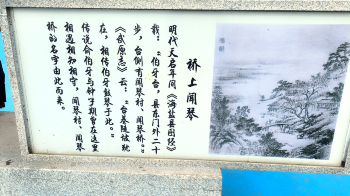 桥上闻琴
明代天启年间《海盐县图经》
载：“伯牙台，县东门外二十
步，台侧有闻琴村、闻琴桥。”
《武原志》云：“台基陂坡
在，相传伯牙鼓琴于此。”
传说俞伯牙与钟子期曾在这里
相遇相知相守，闻琴村、闻琴
桥的名字由此而来。